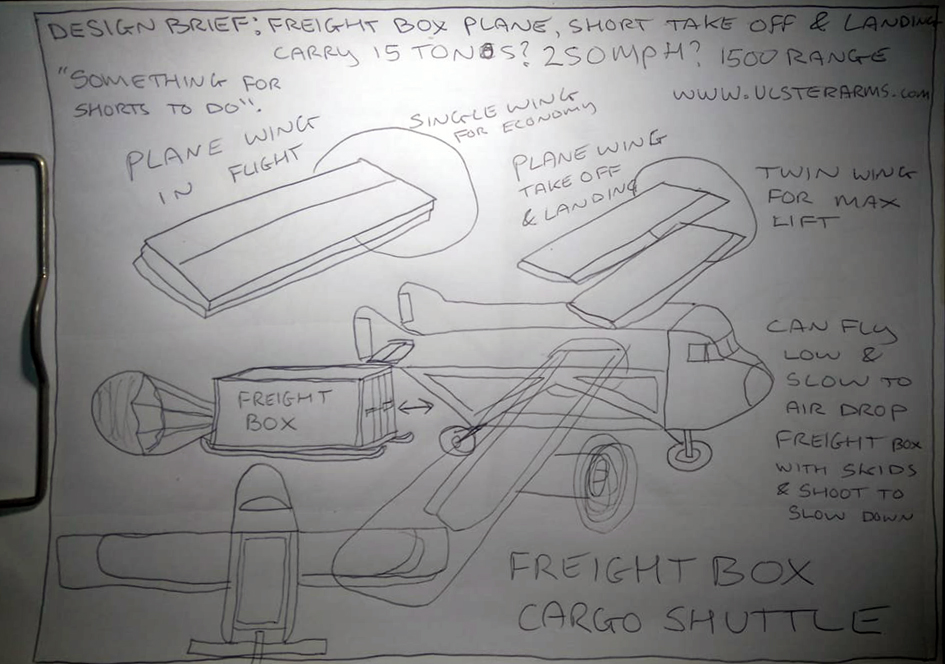 DESIGN BRIEF: FREIGHT BOX PLANE, SHORT TAKE OFF & LANDING
CARRY 15 TONES? 250MPH? 1500 RANGE
"SOMETHING FOR
SHORTS TO DO".
WWW.ULSTERARMS.com
PLANE WING
IN FLIGHT
SINGLE WING
FOR ECONOMY
PLANE WING
TAKE OFF
& LANDING
TWIN WING
FOR MAX
LIFT
CAN FLY
LOW &
SLOW TO
AIR DROP
FREIGHT BOX
WITH SKIDS
& SHOOT TO
SLOW DOWN
FREIGHT
BOX
FREIGHT BOX
CARGO SHUTTLE